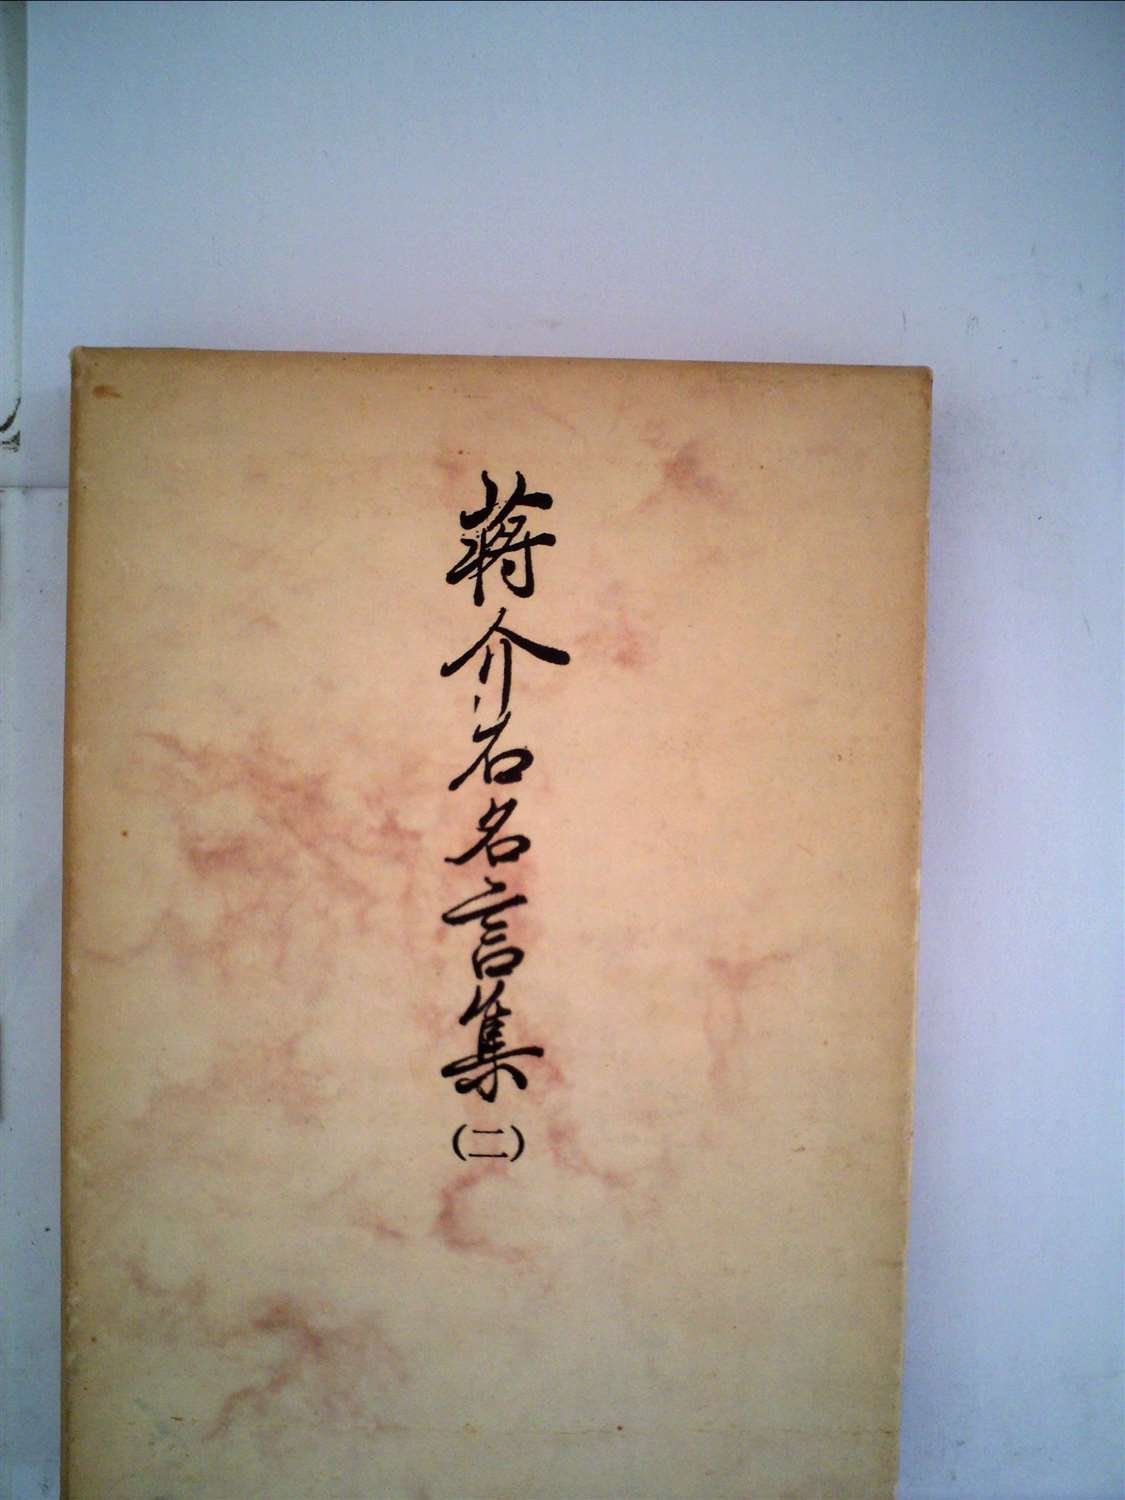 蒋介石名言集
(二)